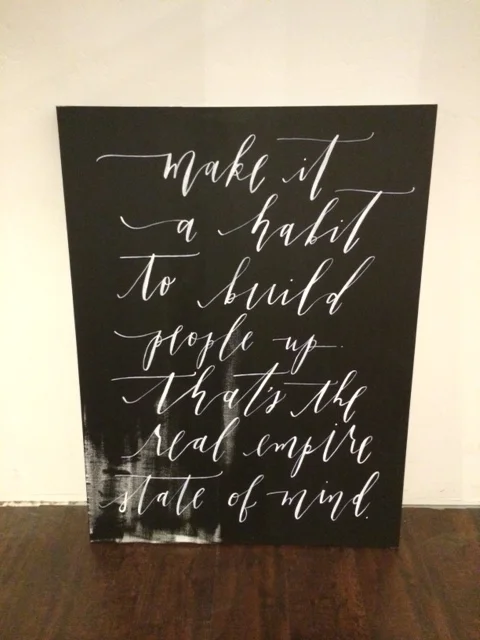 make it
a habit
to build
people up.
that's the
real empire
state of mind.